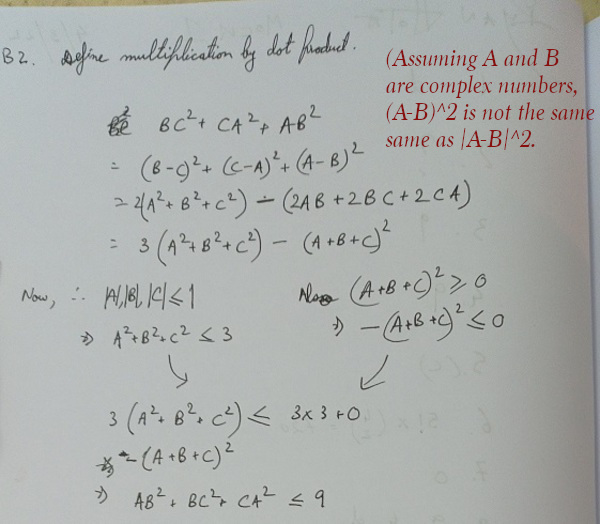 B2. Define multiplication by dot product.
(Assuming A and B
are complex numbers,
(A-B)^2 is not the same
same as |A-B|^2.
BC² + CA² + AB²
= (B-C)² + (C-A)² + (A-B)²
= 2(A² + B² + C²) - (2AB + 2BC + 2CA)
= 3(A² + B² + C²) - (A+B+C)²
Now, ∵ |A|,|B|,|C| ≤ 1
⇒ A² + B² + C² ≤ 3
Also (A+B+C)² ≥ 0
⇒ -(A+B+C)² ≤ 0
3(A² + B² + C²) ≤ 3x3+0
-(A+B+C)²
⇒ AB² + BC² + CA² ≤ 9